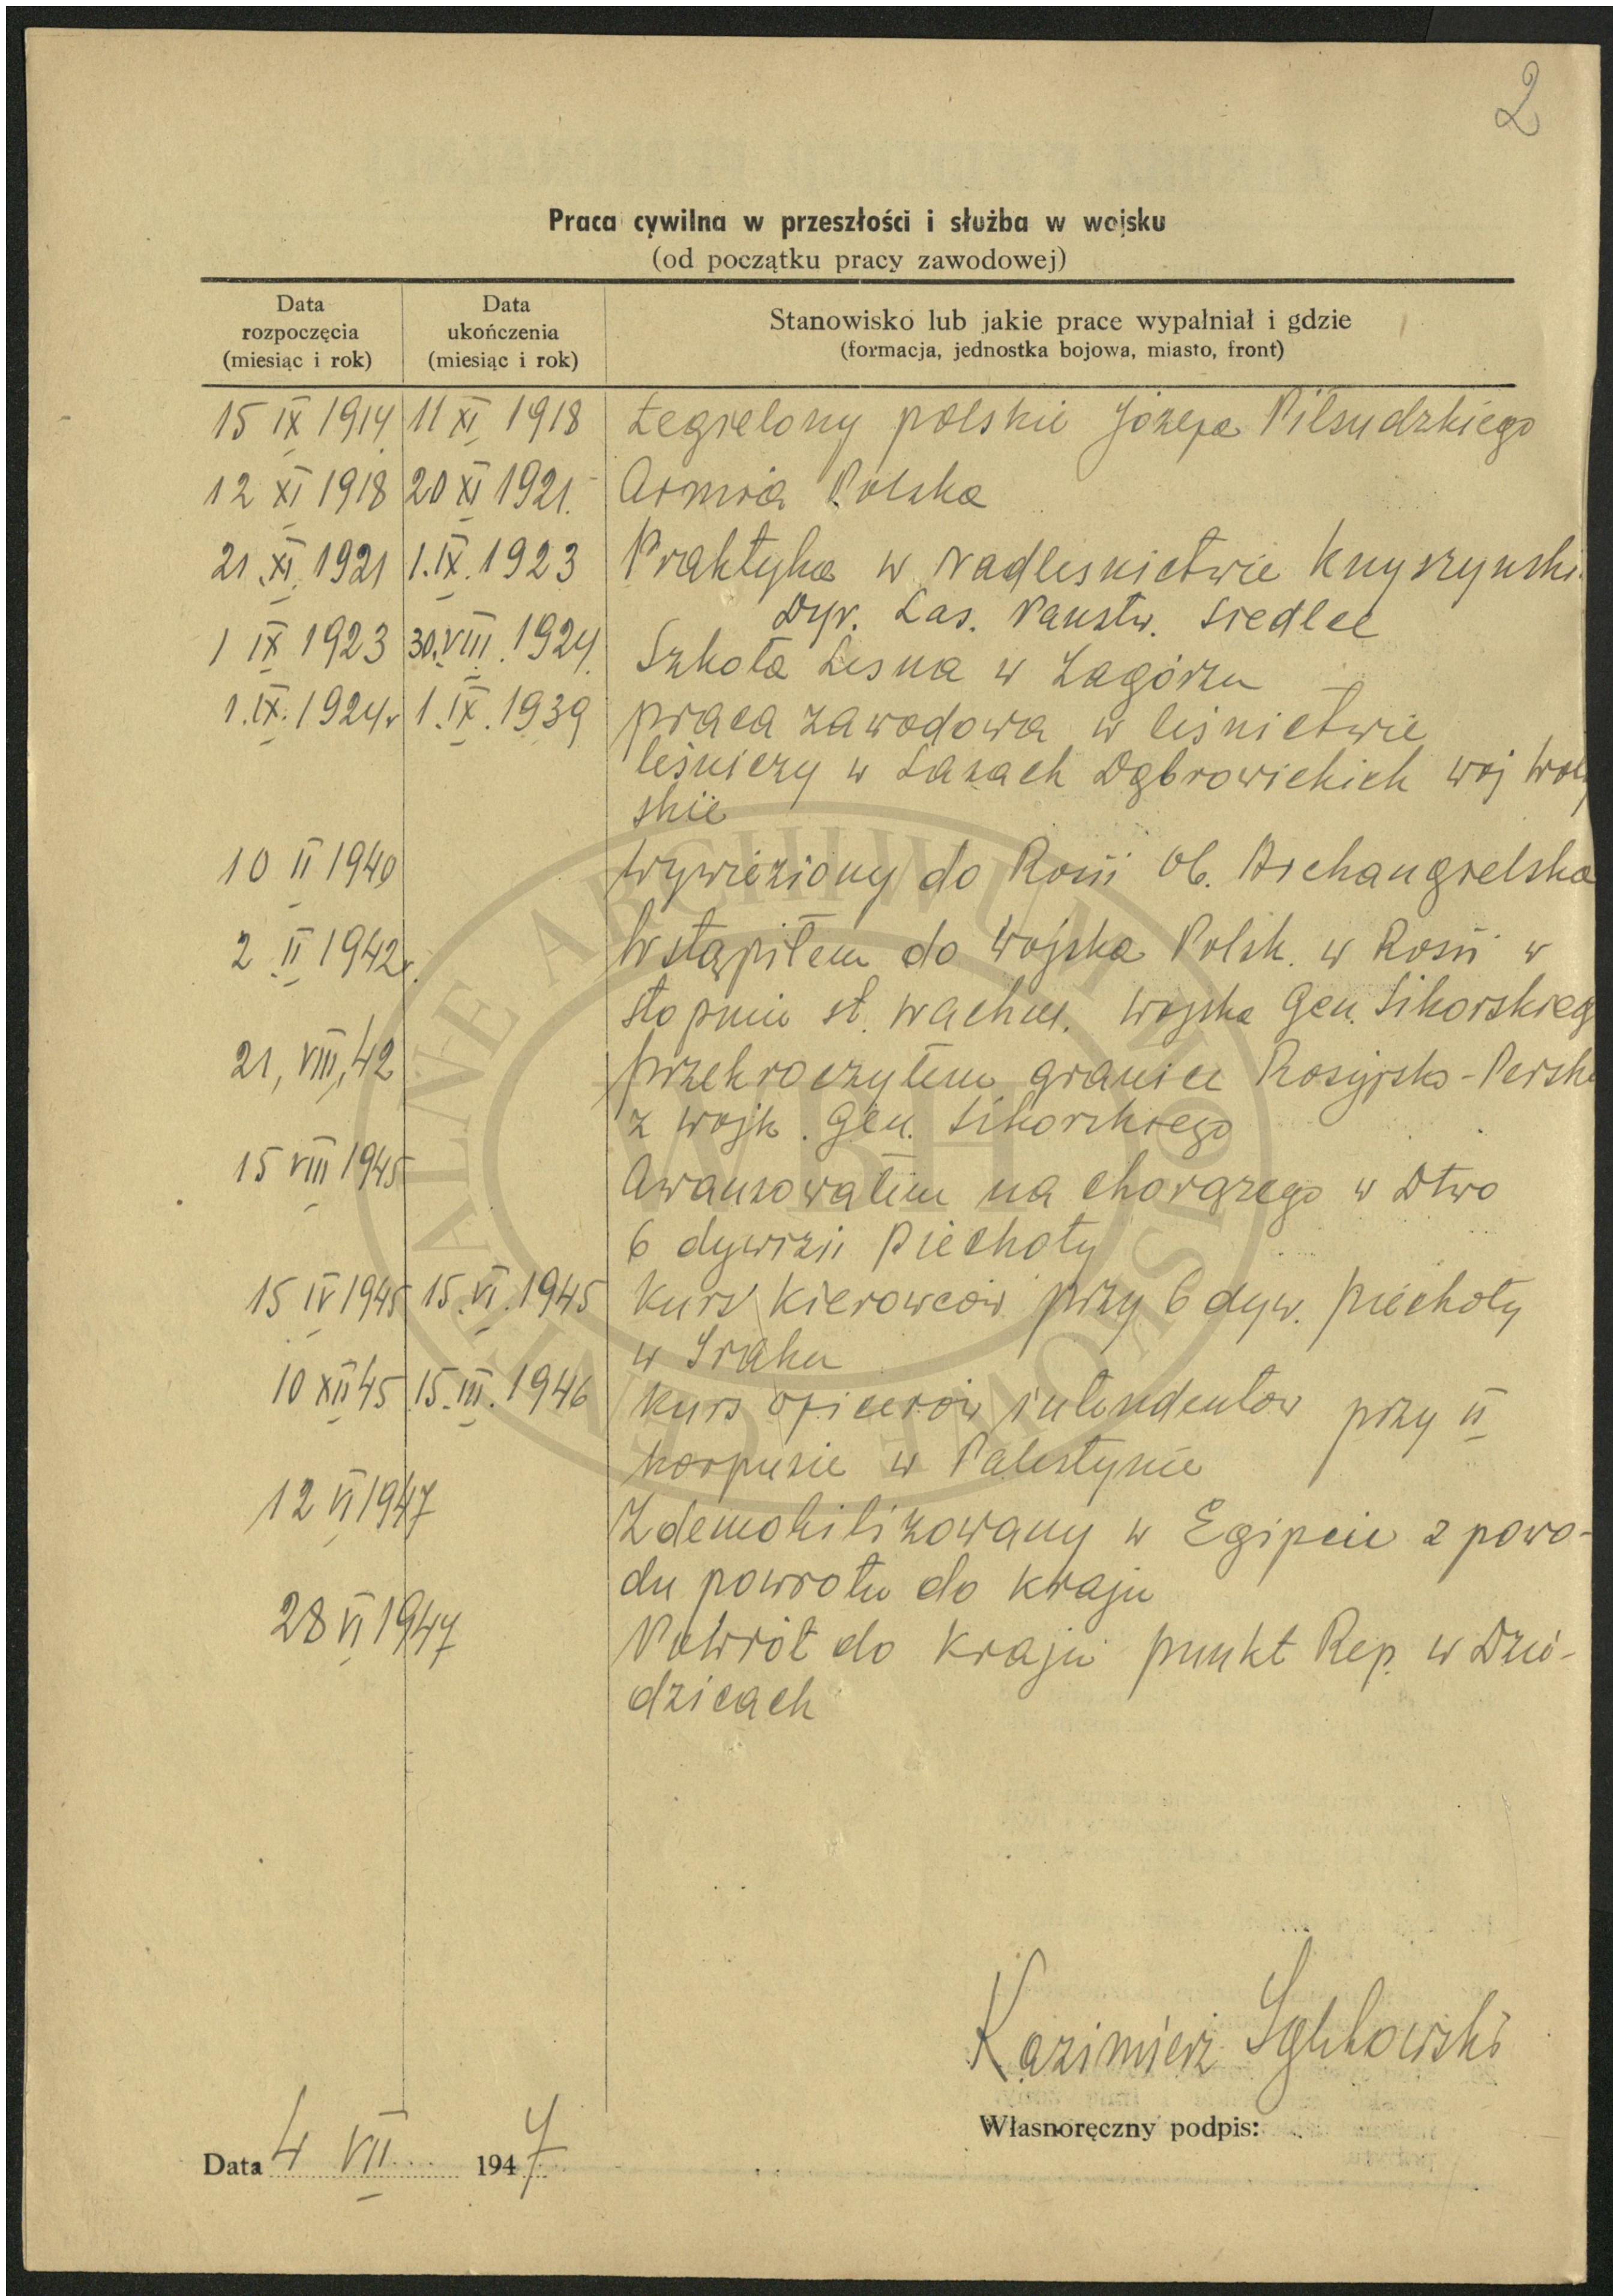 2
Praca cywilna w przeszłości i służba w wojsku
(od początku pracy zawodowej)
Data rozpoczęcia (miesiąc i rok)
Data ukończenia (miesiąc i rok)
Stanowisko lub jakie prace wypałniał i gdzie
(formacja, jednostka bojowa, miasto, front)
15 IX 1914 11 XI 1918 Legielony polskie Józefa Pilsudzkiego
12 XI 1918 20 XI 1921. Armia Polska
21 XI 1921 1.IX.1923 Praktyka w Nadlesnictwie Knyszynski
Dyr. Las. Panstw. Siedlce
1 IX 1923 30.VIII.1924. Szkoła Lesna w Zagórzu
1.IX.1924r 1.IX.1939 praca zawodowa w leśnictwie
leśniczy w Lasach Dąbrowickich woj Woły
skie
10 II 1940 wywieziony do Rosii Ob. Archangielska
2 II 1942r. Wstąpiłem do Wojska Polsk. w Rosii w
stopniu st. wachm. wojska Gen. Sikorskieg
21, VIII, 42 przekroczyłem granice Rosyjsko-Persk
z wojsk. Gen. Sikorskiego
15 VIII 1945 Awansowałem na chorązego w Dtwo
6 dywizii Piechoty
15 IV 1945 15.VI.1945 Kurs Kierowców przy 6 dyw. piechoty
w Iraku
10 XII 45 15.III.1946 Kurs oficerów intendentów przy II
korpusie w Palestynie
12 VI 1947 Zdemobilizowany w Egipcie z powo-
du powrotu do kraju
28 VI 1947 Powrót do Kraju punkt Rep. w Dzie-
dzicach
Kazimierz
Własnoręczny podpis:
Data 4 VII 1947
ARCHIWUM
WBH